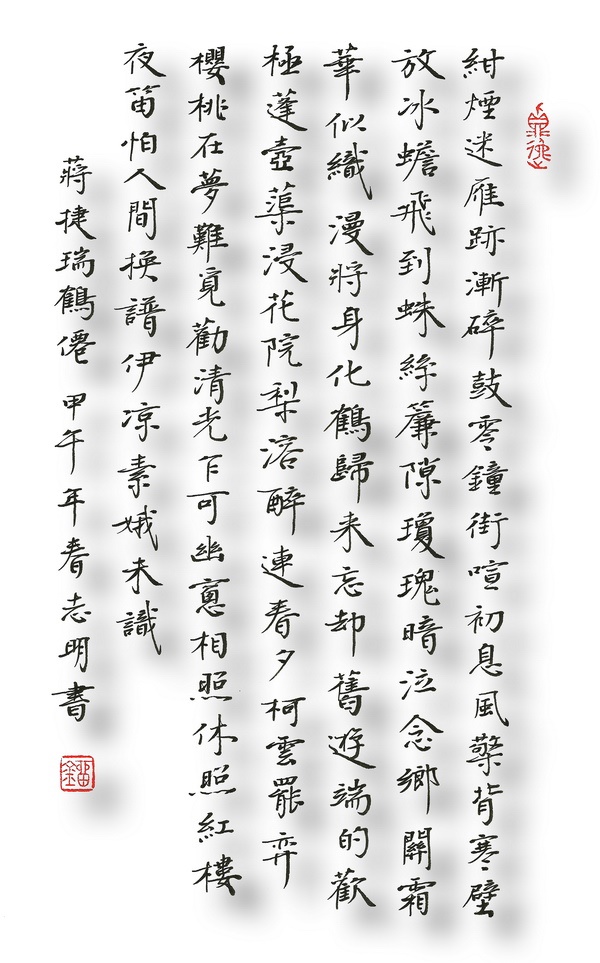 紺煙迷雁跡漸碎鼓零鐘街喧初息風檠背寒壁
放冰蟾飛到蛛絲簾隙瓊瑰暗泣念鄉關霜
華似織漫將身化鶴歸来忘却舊遊端的歡
極蓬壺蕖浸花院梨溶醉連春夕柯雲罷弈
櫻桃在夢難覓勸清光乍可幽窻相照休照紅樓
夜笛怕人間換譜伊凉素娥未識
蔣捷瑞鶴僊 甲午年春志明書